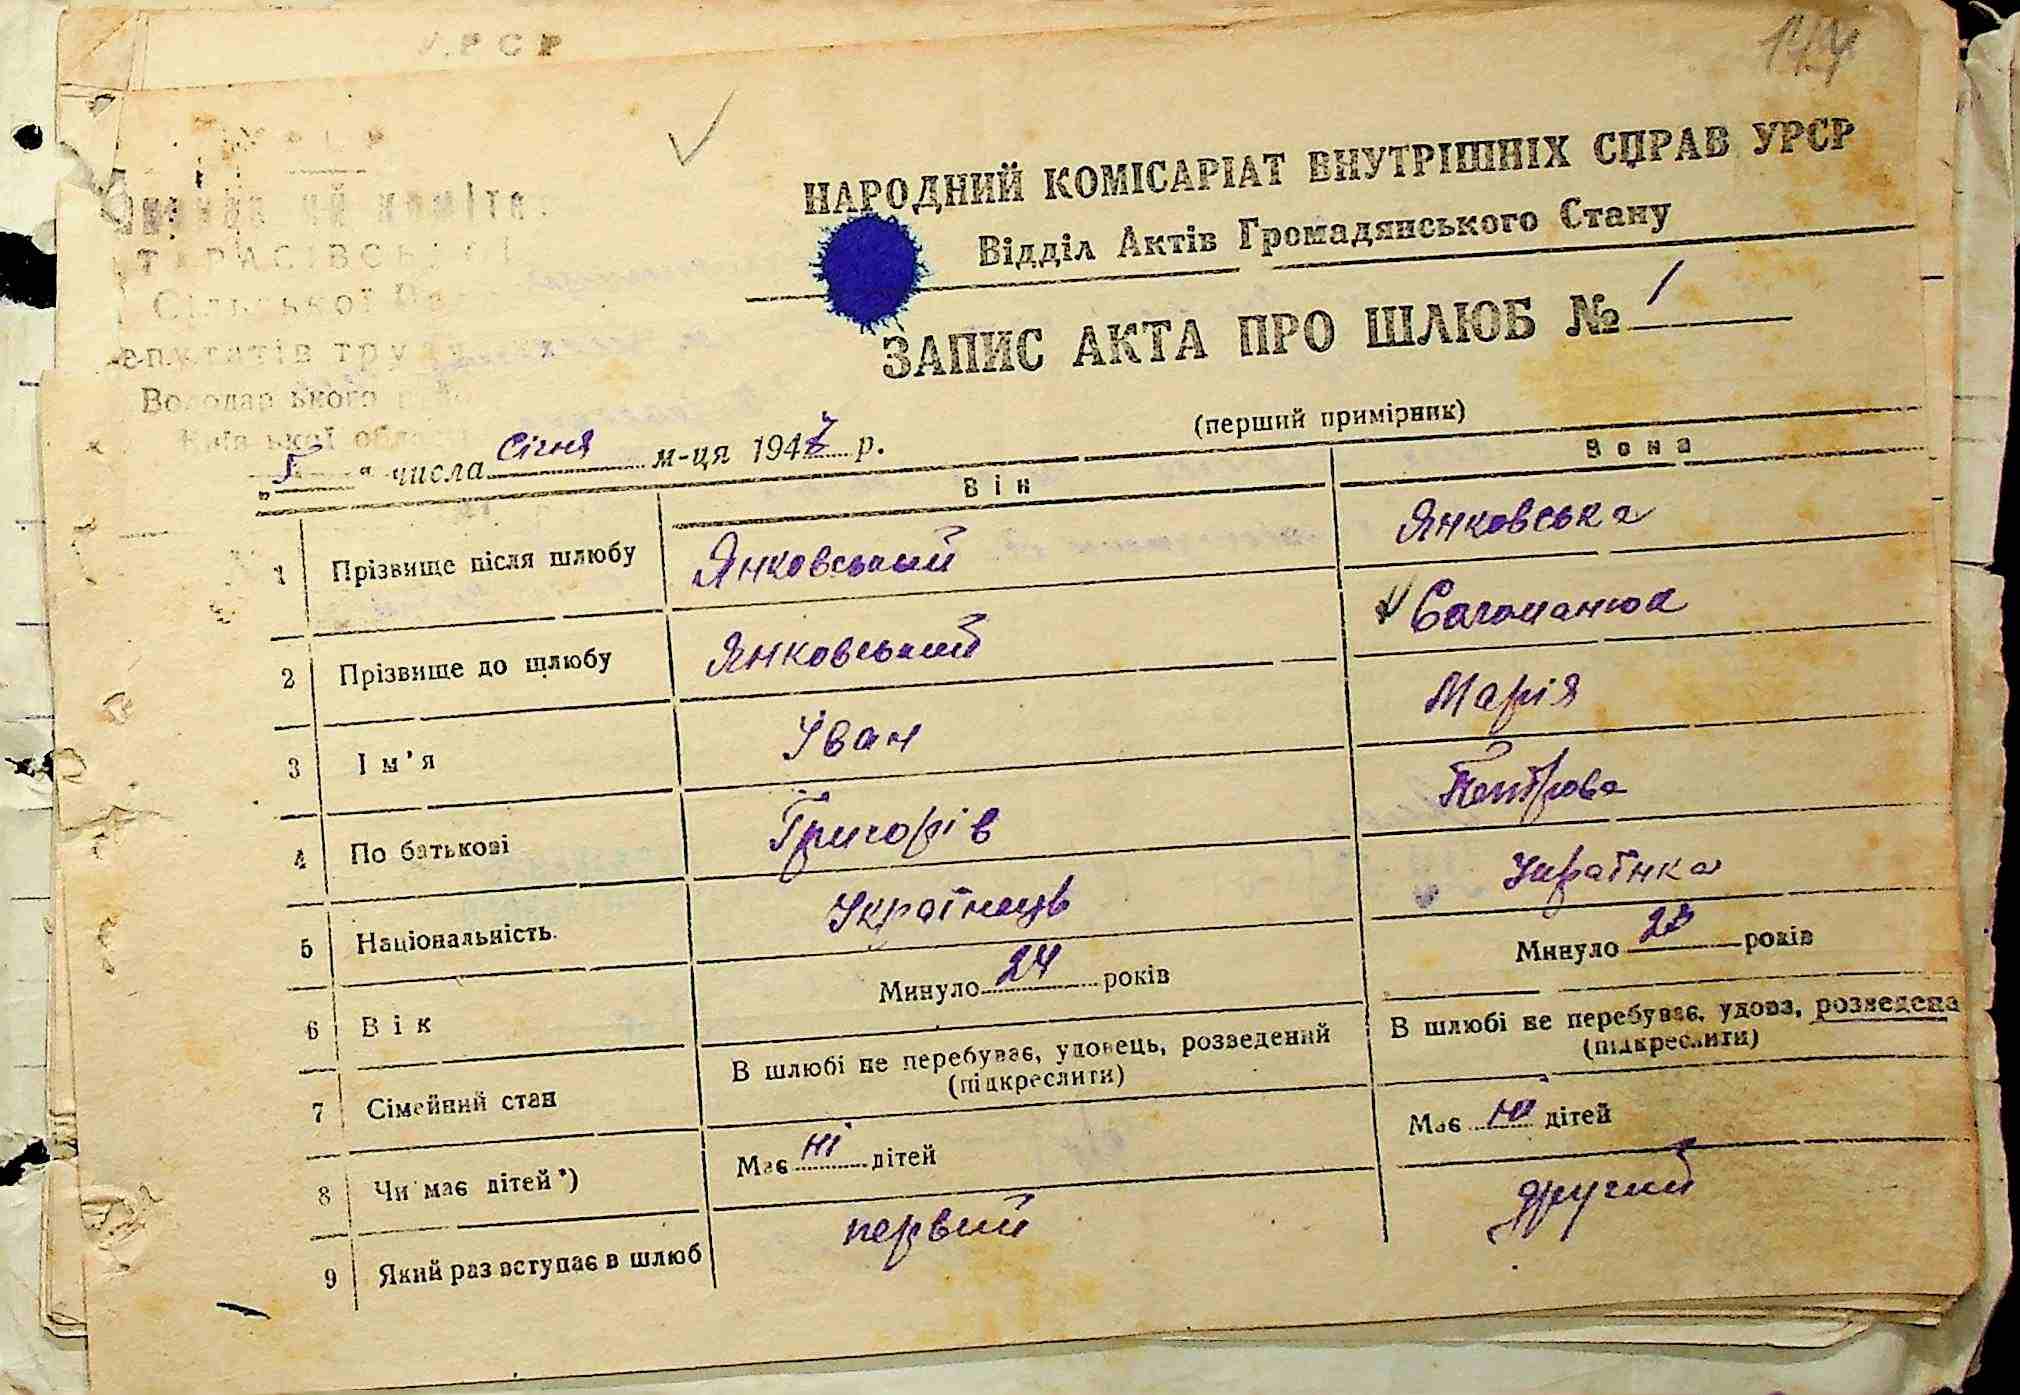 УРСР
144
ТАРАСІВСЬКОЇ
Сільської Ради
депутатів трудящих
Володарського району
Київської області
НАРОДНИЙ КОМІСАРІАТ ВНУТРІШНІХ СПРАВ УРСР
Відділ Актів Громадянського Стану
ЗАПИС АКТА ПРО ШЛЮБ № 1
(перший примірник)
числа січня м-ця 1947 р.
Він Вона
1 Прізвище після шлюбу Янковський Янковська
2 Прізвище до шлюбу Янковський
3 Ім'я Іван Марія
4 По батькові Григорів Петрова
5 Національність. Українець Українка
6 Вік Минуло 24 років Минуло 23 років
7 Сімейний стан В шлюбі не перебуває, удовець, розведений (підкреслити) В шлюбі не перебуває, удова, розведена (підкреслити)
8 Чи має дітей*) Має ні дітей Має ні дітей
9 Який раз вступає в шлюб первий другий